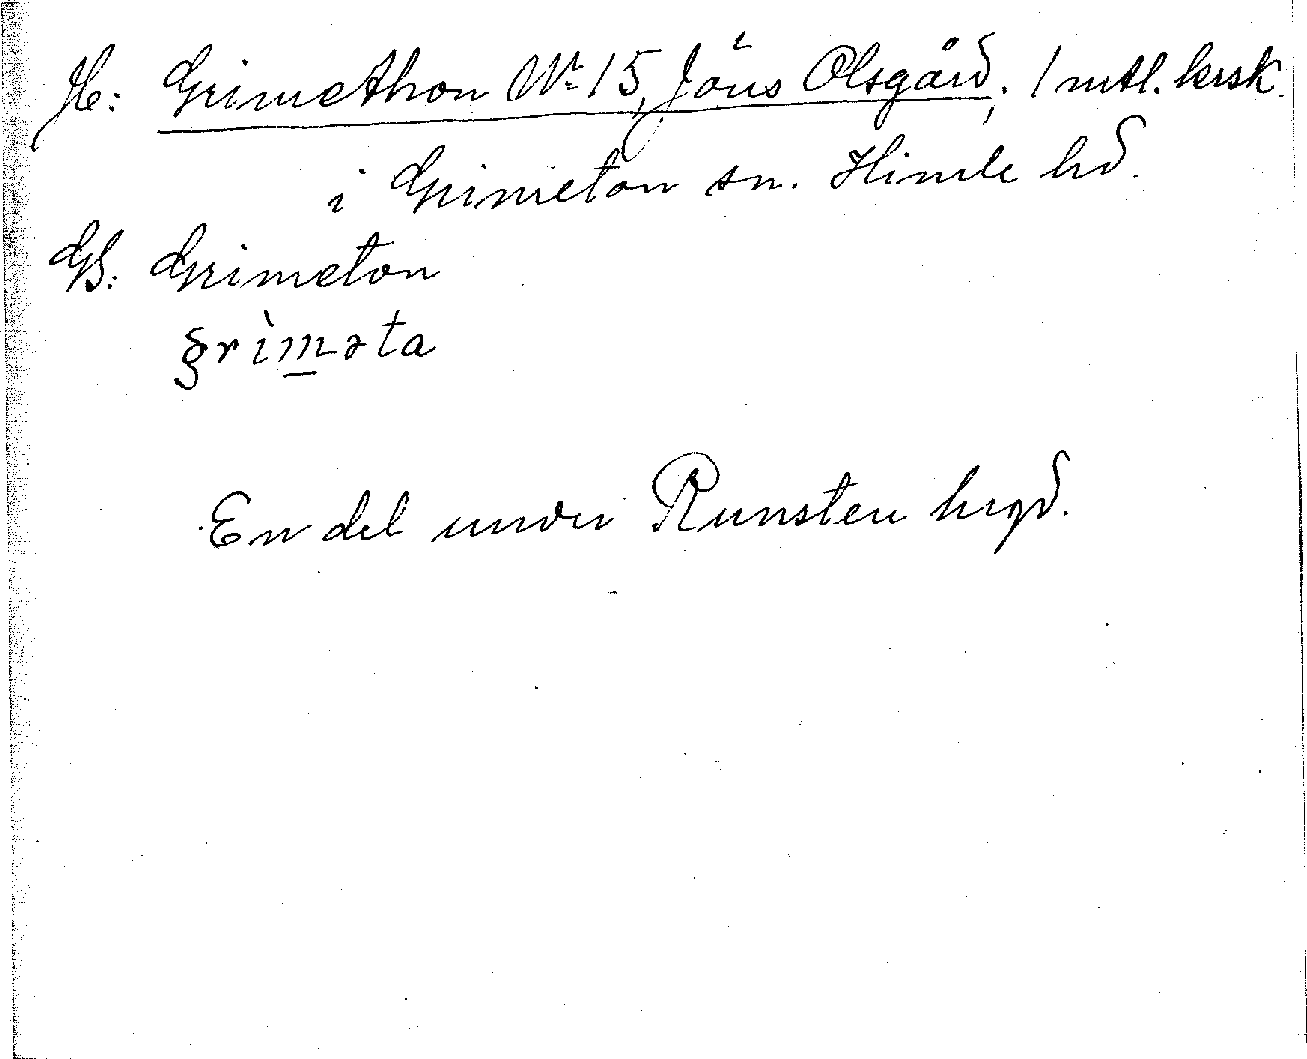 Je: Grimethon No 15, Jöns Olsgård; 1 mtl. krsk.
i Grimeton sn. Himle hd.
GB: Grimeton
grìməta
En del under Runsten hrgd.